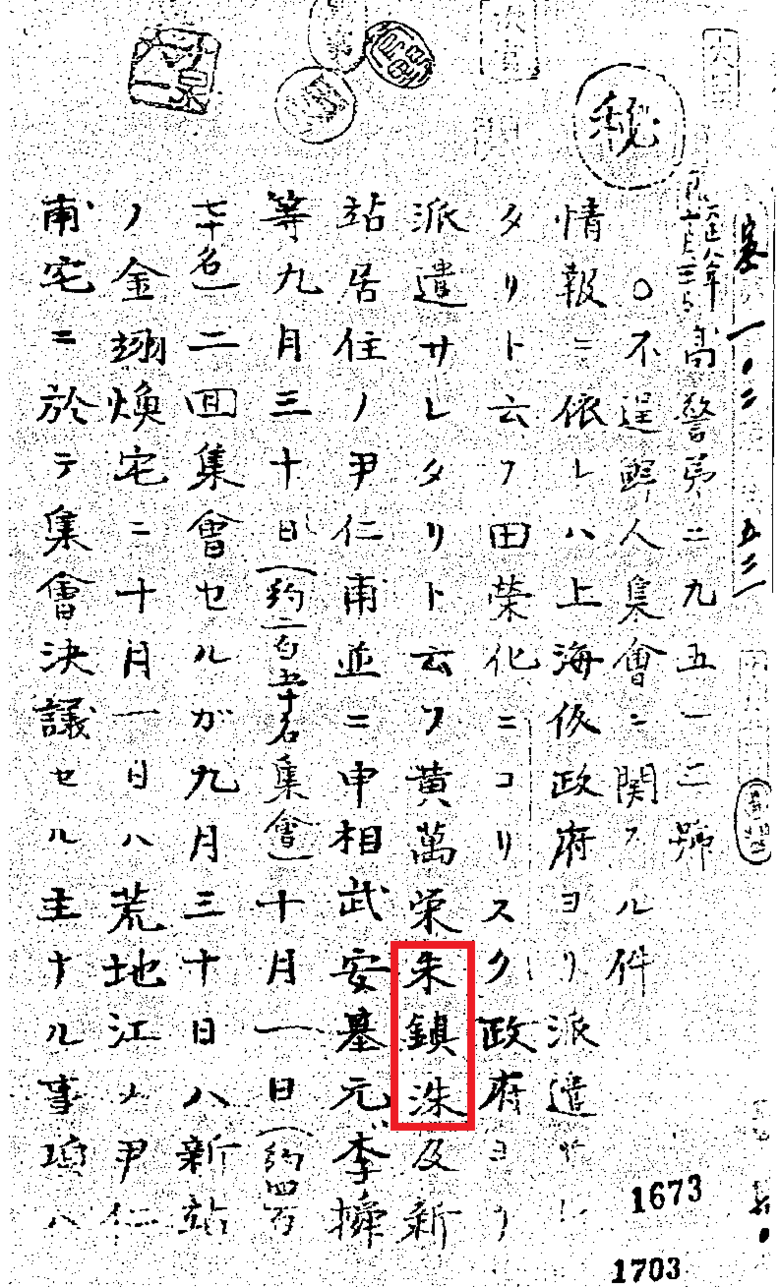 秘
高警第二九五一二號
○不逞鮮人集會ニ関スル件
情報ニ依レハ上海仮政府ヨリ派遣サレ
タリト云フ田榮化ニコリスク政府ヨリ
派遣サレタリト云フ黄萬栄朱鎮洙及新
站居住ノ尹仁甫並ニ申相武安基元李
等九月三十日(約二百五十名集會)十月一日(約四百
七十名)二回集會セルガ九月三十日ハ新站
ノ金翊煥宅ニ十月一日ハ荒地江ノ尹仁
甫宅ニ於テ集會決議セル主ナル事項ハ
1673
1703